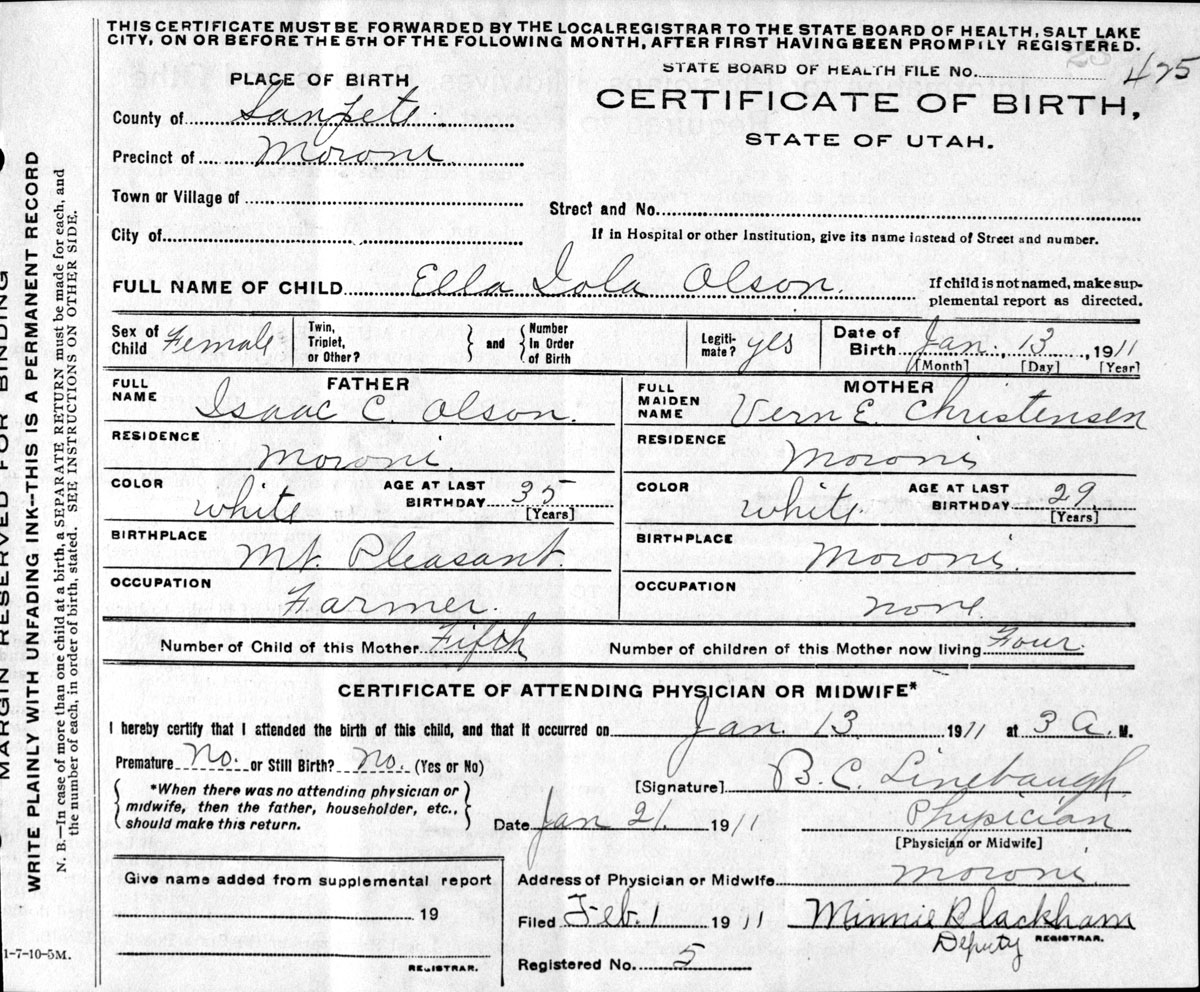 THIS CERTIFICATE MUST BE FORWARDED BY THE LOCAL REGISTRAR TO THE STATE BOARD OF HEALTH, SALT LAKE
CITY, ON OR BEFORE THE 5TH OF THE FOLLOWING MONTH, AFTER FIRST HAVING BEEN PROMPTLY REGISTERED.
STATE BOARD OF HEALTH FILE No. 425
PLACE OF BIRTH
CERTIFICATE OF BIRTH,
STATE OF UTAH.
County of Sanpete
Precinct of Moroni
Town or Village of
Street and No.
City of
If in Hospital or other Institution, give its name instead of Street and number.
FULL NAME OF CHILD Ella Iola Olson.
If child is not named, make sup-
plemental report as directed.
Sex of Child Female
Twin, Triplet, or Other?
and
Number In Order of Birth
Legiti-mate? yes
Date of Birth Jan. 13, 1911
[Month] [Day] [Year]
FATHER
FULL NAME Isaac C. Olson.
MOTHER
FULL MAIDEN NAME Vern E. Christensen
RESIDENCE Moroni.
RESIDENCE Moroni
COLOR white AGE AT LAST BIRTHDAY 35 [Years]
COLOR white. AGE AT LAST BIRTHDAY 29 [Years]
BIRTHPLACE Mt. Pleasant.
BIRTHPLACE Moroni.
OCCUPATION Farmer.
OCCUPATION none.
Number of Child of this Mother Fifth
Number of children of this Mother now living Four
CERTIFICATE OF ATTENDING PHYSICIAN OR MIDWIFE*
I hereby certify that I attended the birth of this child, and that it occurred on Jan. 13. 1911 at 3 a. M.
Premature No. or Still Birth? No. (Yes or No)
*When there was no attending physician or
midwife, then the father, householder, etc.,
should make this return.
[Signature] B. C. Linebaugh
Date Jan 21. 1911
Physician
[Physician or Midwife]
Give name added from supplemental report
19
REGISTRAR.
Address of Physician or Midwife Moroni.
Filed Feb. 1 1911 Minnie Blackham
Deputy REGISTRAR.
Registered No. 5
1-7-10-5M.
MARGIN RESERVED FOR BINDING
WRITE PLAINLY WITH UNFADING INK--THIS IS A PERMANENT RECORD
N. B.--In case of more than one child at a birth, a SEPARATE RETURN must be made for each, and
the number of each, in order of birth, stated. SEE INSTRUCTIONS ON OTHER SIDE.